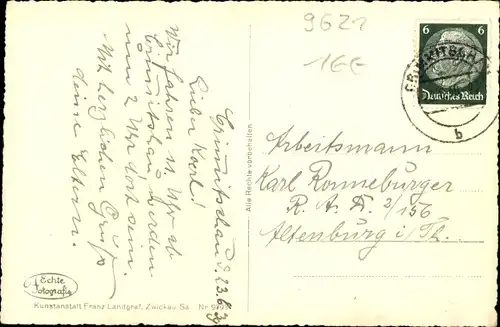 9621
16E
6
Deutsches Reich
b
Crimmitschau d. 23.6.
Lieber Karl!
Wir fahren 11 Uhr ab
Crimmitschau, werden
um 2 Uhr dort sein.
Mit herzlichem Gruß
deine Eltern.
Alle Rechte vorbehalten
Arbeitsmann
Karl Ronneburger
R. A. D. 2/156
Altenburg i/Th.
Echte
Fotografie
Kunstanstalt Franz Landgraf, Zwickau Sa. Nr.